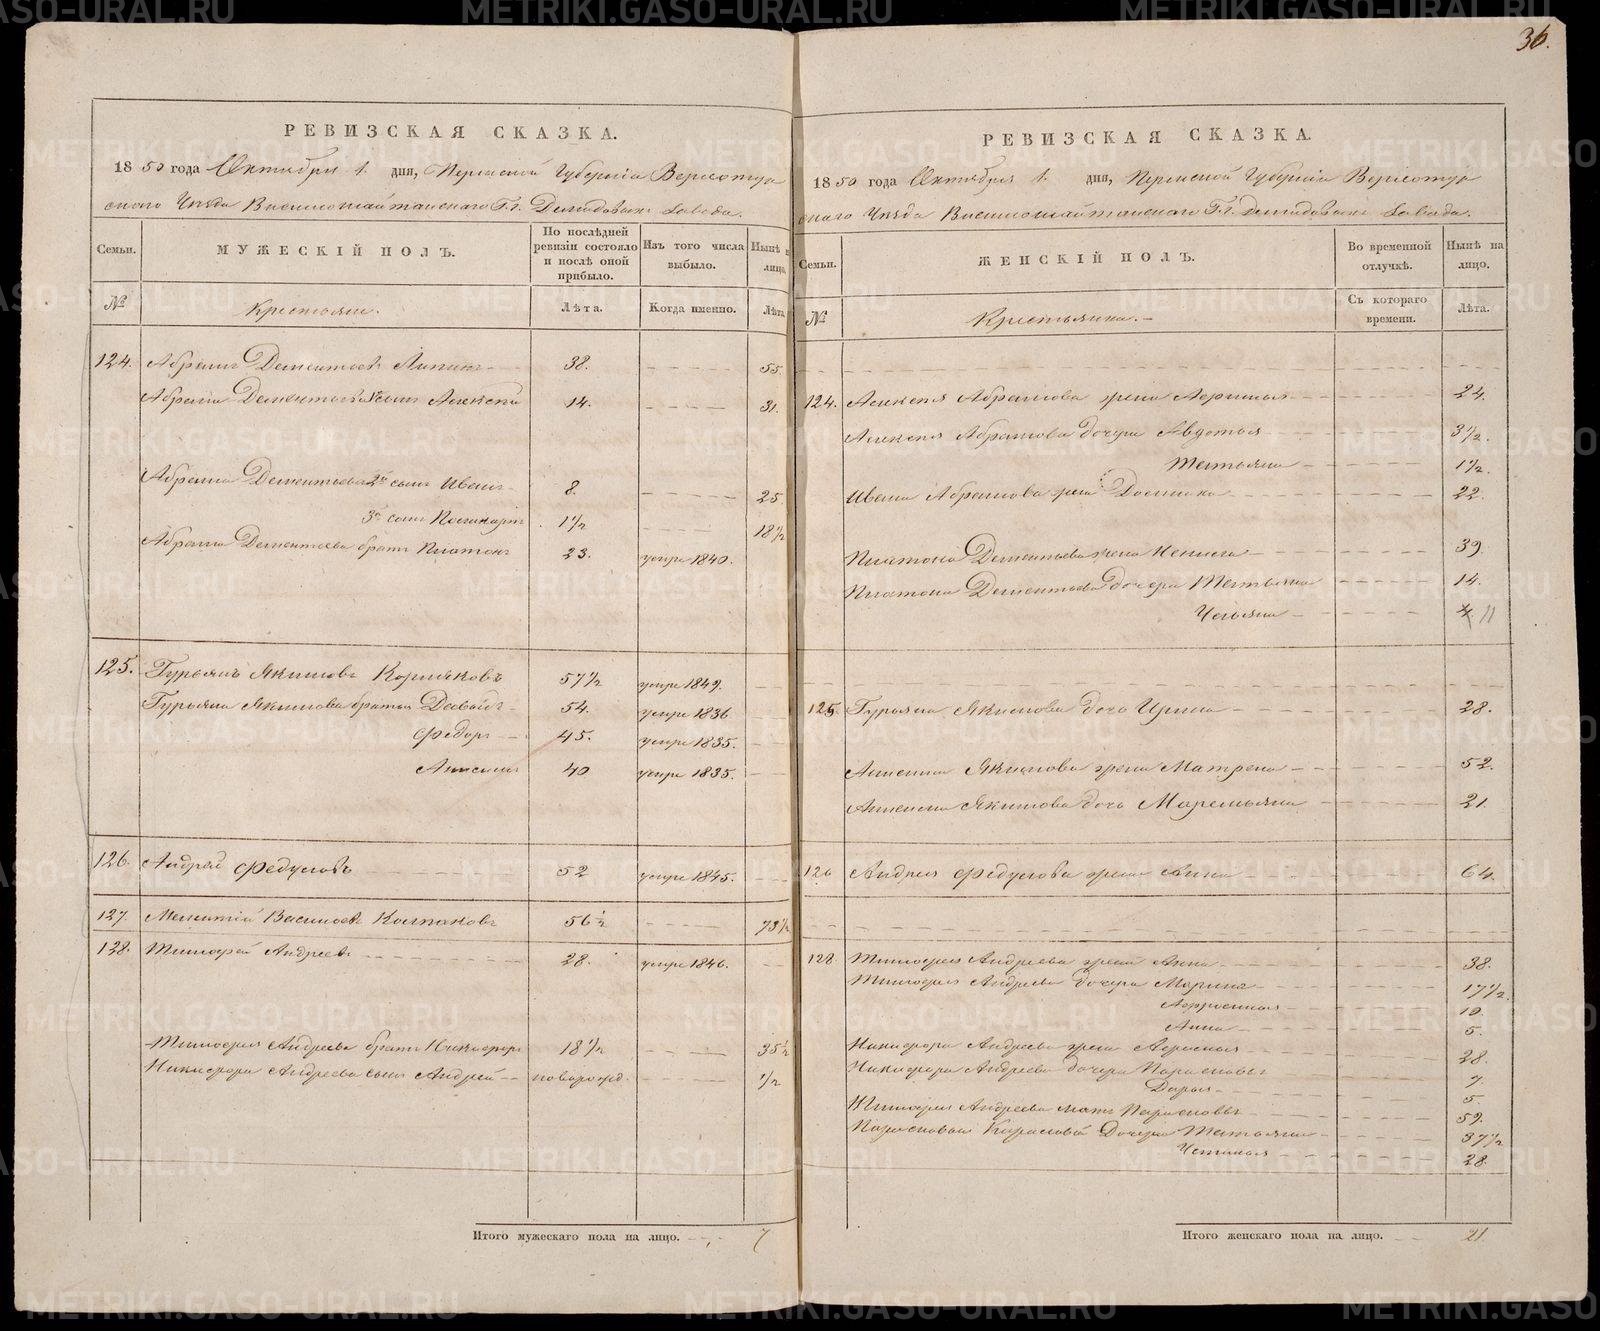 36.
РЕВИЗСКАЯ СКАЗКА.
1850 года Октября 1. дня, Пермской Губернiи Верхотур
скаго Уѣзда Висимошайтанскаго Г.г. Демидовыхъ Завода.
Семьи.
МУЖЕСКIЙ ПОЛЪ.
По послѣдней ревизiи состояло и послѣ оной прибыло.
Изъ того числа выбыло.
Нынѣ на лицо.
№
Крестьяне.
Лѣта.
Когда именно.
Лѣта.
124. Абрамъ Дементьевъ 38. 55.
Абрама Дементьева 1й сынъ Алексѣй 14. 31.
Абрама Дементьева 2й сынъ Иванъ 8. 25
3й сынъ 1 1/2 18 1/2
Абрама Дементьева братъ Платонъ 23. умре 1840.
125. Гурьянъ Якимовъ Корняковъ 57 1/2 умре 1849.
Гурьяна Якимова братья Давыдъ 54. умре 1836
Федоръ 45. умре 1835.
40 умре 1835.
126. Андрей Федуловъ 52 умре 1845.
127. Мелентiй Васильевъ Колпаковъ 56 1/2 73 1/2
128. Тимофей Андреевъ 28. умре 1846.
Тимофея Андреева братъ Никифоръ 18 1/2 35 1/2
Никифора Андреева сынъ Андрей новорожд. 1/2
Итого мужескаго пола на лицо. 7
РЕВИЗСКАЯ СКАЗКА.
1850 года Октября 1. дня, Пермской Губернiи Верхотур
скаго Уѣзда Висимошайтанскаго Г.г. Демидовыхъ Завода.
Семьи.
ЖЕНСКIЙ ПОЛЪ.
Во временной отлучкѣ.
Нынѣ на лицо.
№
Крестьянки.
Съ котораго времени.
Лѣта.
124. Алексѣя Абрамова жена 24.
Алексѣя Абрамова дочери Авдотья 3 1/2.
Татьяна 1 1/2.
Ивана Абрамова жена Домника 22.
Платона Дементьева жена Ксенiя 39.
Платона Дементьева дочери Татьяна 14.
Ульяна 11
125. Гурьяна Якимова дочь Ирина 28.
Якимова жена Матрена 52.
Якимова дочь Маремьяна 21.
126 Андрея Федулова жена Анна 64.
128. Тимофея Андреева жена Анна 38.
Тимофея Андреева дочери Марина 17 1/2.
10.
Анна 5.
Никифора Андреева жена 28.
Никифора Андреева дочери Парасковья 7.
Дарья 5.
Тимофея Андреева мать Парасковья 59.
Парасковьи дочери Татьяна 37 1/2
Устинья 28.
Итого женскаго пола на лицо. 21.
METRIKI.GASO-URAL.RU